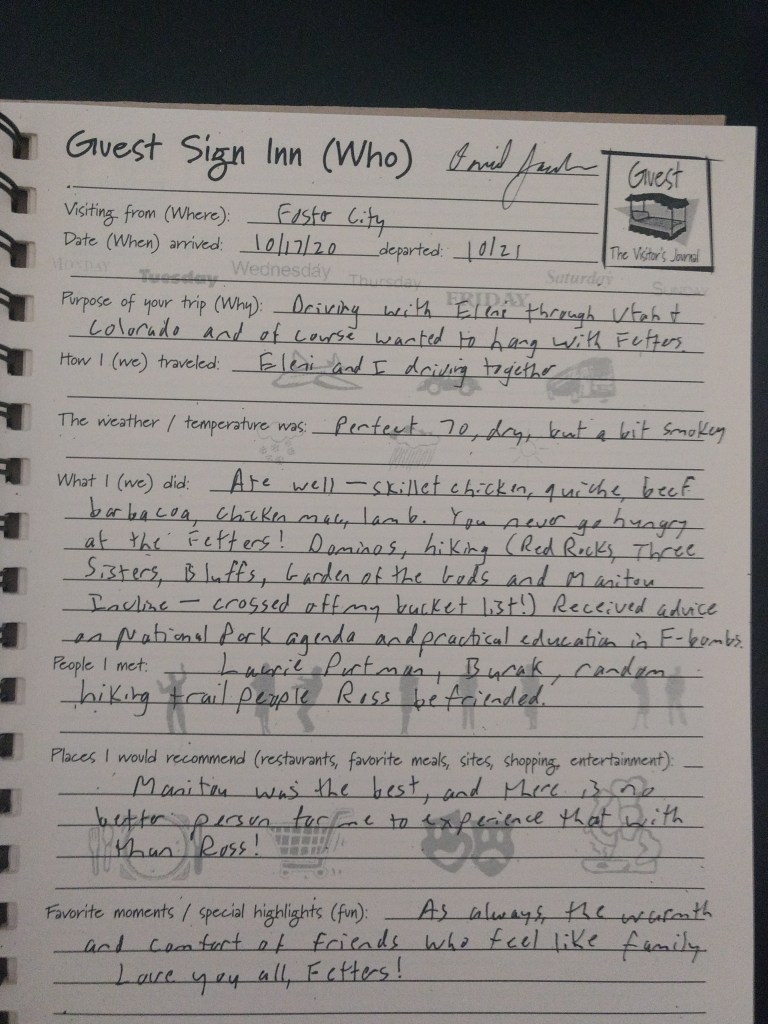 Guest Sign Inn (Who)
Guest
The Visitor's Journal
Visiting from (Where): Foster City
Date (When) arrived: 10/17/20 departed: 10/21
MONDAY Tuesday Wednesday Thursday FRIDAY Saturday SUNDAY
Purpose of your trip (Why): Driving with Eleni through Utah +
Colorado and of course wanted to hang with Fetters.
How I (we) traveled: Eleni and I driving together
The weather / temperature was: Perfect 70, dry, but a bit smokey
What I (we) did: Ate well - skillet chicken, quiche, beef
barbacoa, chicken mac, lamb. You never go hungry
at the Fetters! Dominos, hiking (Red Rocks, Three
Sisters, Bluffs, Garden of the Gods and Manitou
Incline - crossed off my bucket list!) Received advice
on National Park agenda and practical education in F-bombs.
People I met: Laurie Putman, Burak, random
hiking trail people Ross befriended.
Places I would recommend (restaurants, favorite meals, sites, shopping, entertainment):
Manitou was the best, and there is no
better person for me to experience that with
than Ross!
Favorite moments / special highlights (fun): As always, the warmth
and comfort of friends who feel like family
Love you all, Fetters!